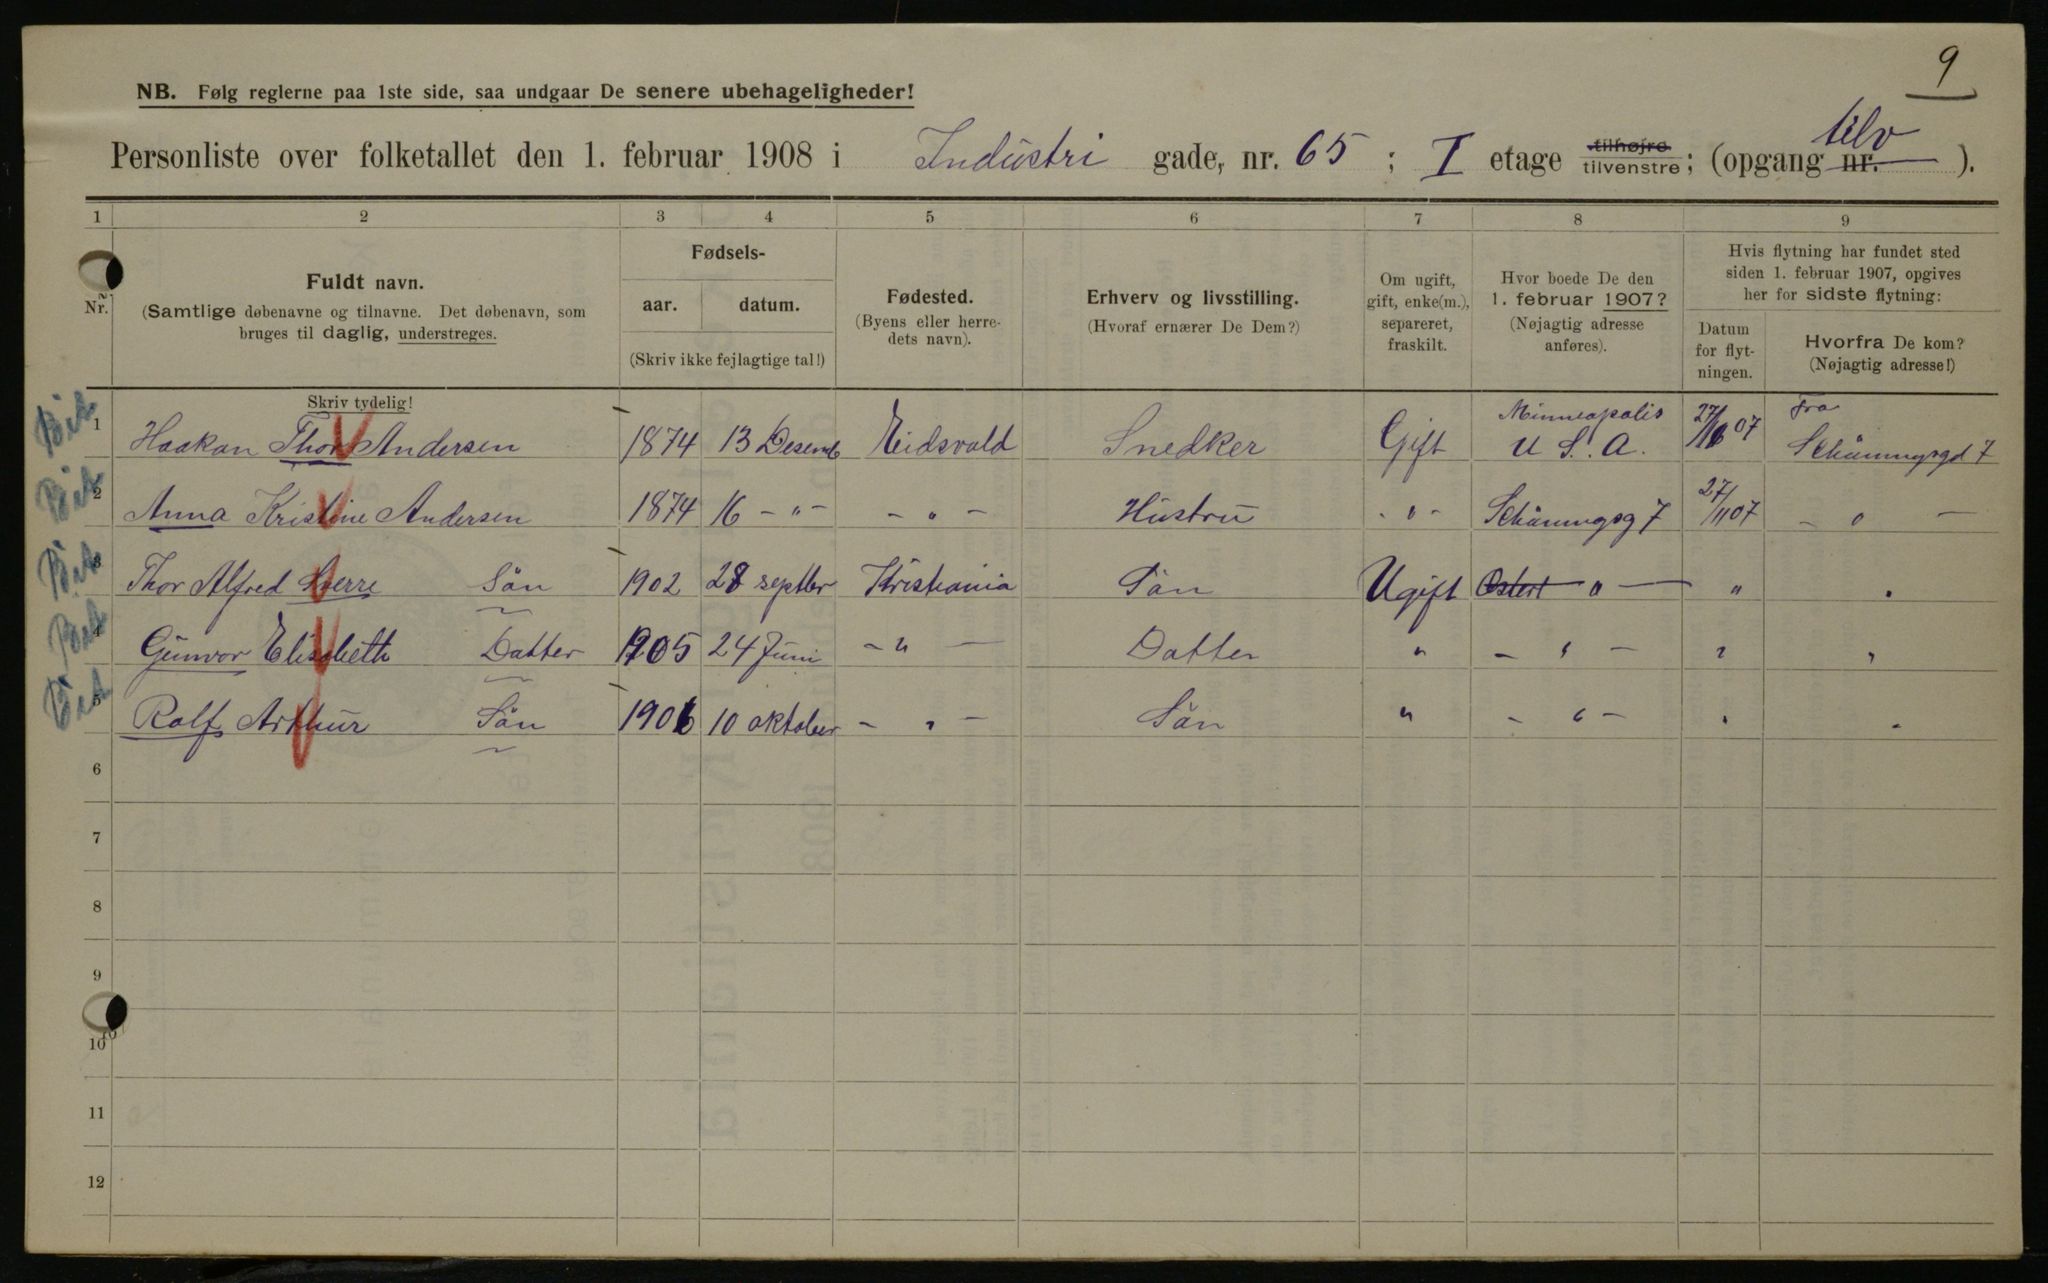 9
NB. Følg reglerne paa 1ste side, saa undgaar De senere ubehageligheder!
Personliste over folketallet den 1. februar 1908 i Industri gade, nr. 65 ; I etage tilhøjre tilvenstre; (opgang nr. tilv ).
1 2 3 4 5 6 7 8 9
Nr.
Fuldt navn.
(Samtlige døbenavne og tilnavne. Det døbenavn, som
bruges til daglig, understreges.
Skriv tydelig!
Fødsels-
aar. datum.
(Skriv ikke fejlagtige tal!)
Fødested.
(Byens eller herre-
dets navn).
Erhverv og livsstilling.
(Hvoraf ernærer De Dem?)
Om ugift,
gift, enke(m.),
separeret,
fraskilt.
Hvor boede De den
1. februar 1907?
(Nøjagtig adresse
anføres).
Hvis flytning har fundet sted
siden 1. februar 1907, opgives
her for sidste flytning:
Datum
for flyt-
ningen.
Hvorfra De kom?
(Nøjagtig adresse!)
1 Haakan Thor Andersen 1874 13 Desemb Eidsvold Snedker Gift Minneapolis U. S. A. 27/11 07 Fra Schüningsgd 7
2 Anna Kristine Andersen 1874 16 - " - - " - Hustru - " - Schüningsg 7 27/11 07 - " -
3 Thor Alfred Sverre Sön 1902 28 septbr Kristiania Sön Ugift " - " "
4 Gunvor Elisabeth Datter 1905 24 Juni - " - Datter " - " - " "
5 Rolf Arthur Sön 1906 10 oktober - " - Sön " - " - " "
6
7
8
9
10
11
12